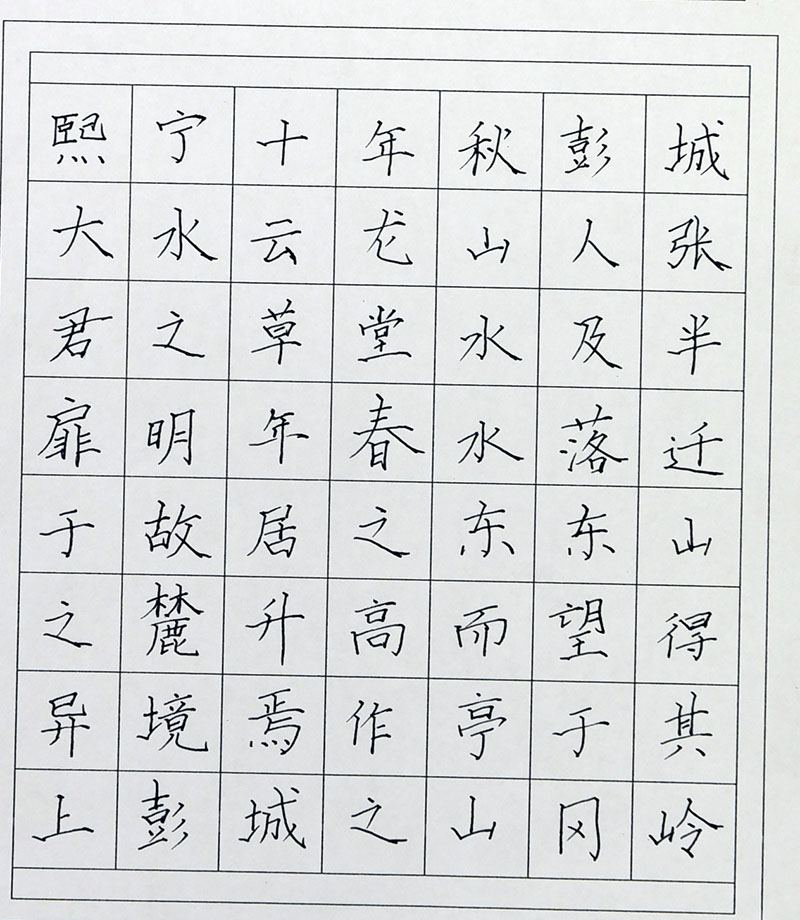 熙宁十年秋彭城
大水云龙山人张
君之草堂水及半
扉明年春水落迁
于故居之东东山
之麓升高而望得
异境焉作亭于其
上彭城之山冈岭